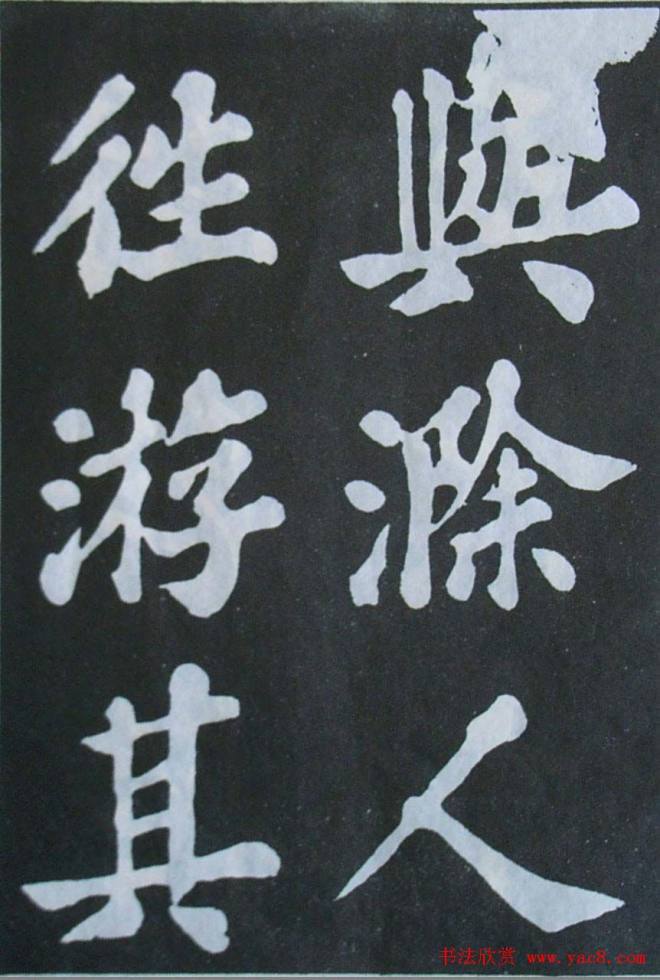 與滁人
往游其
书法欣赏 www.yac8.com